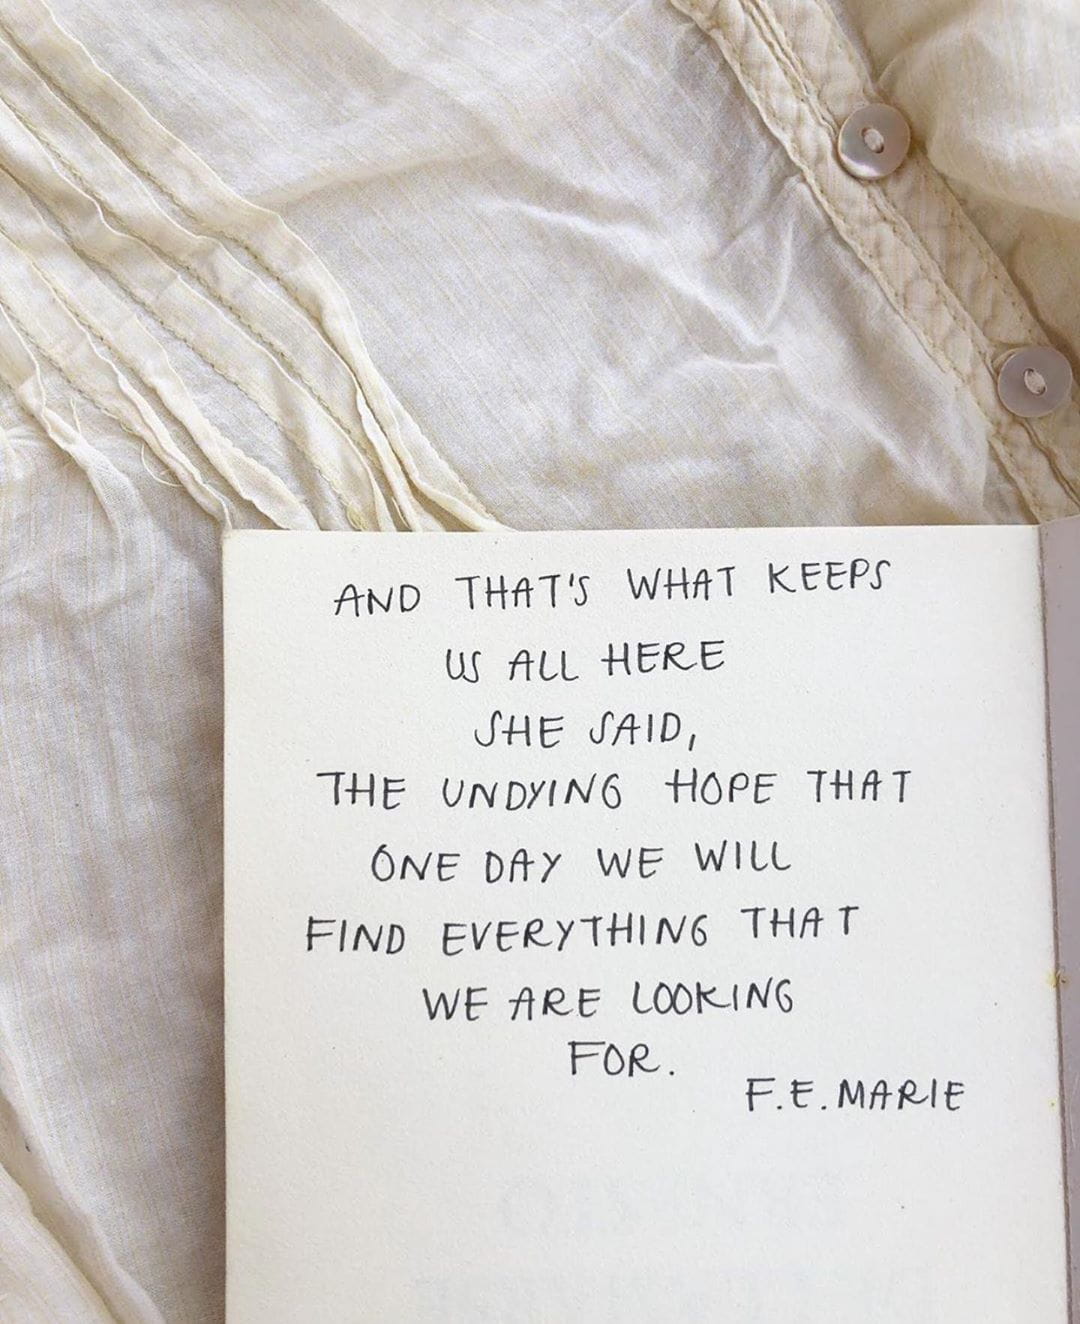 AND THAT'S WHAT KEEPS
US ALL HERE
SHE SAID,
THE UNDYING HOPE THAT
ONE DAY WE WILL
FIND EVERYTHING THAT
WE ARE LOOKING
FOR.
F.E. MARIE